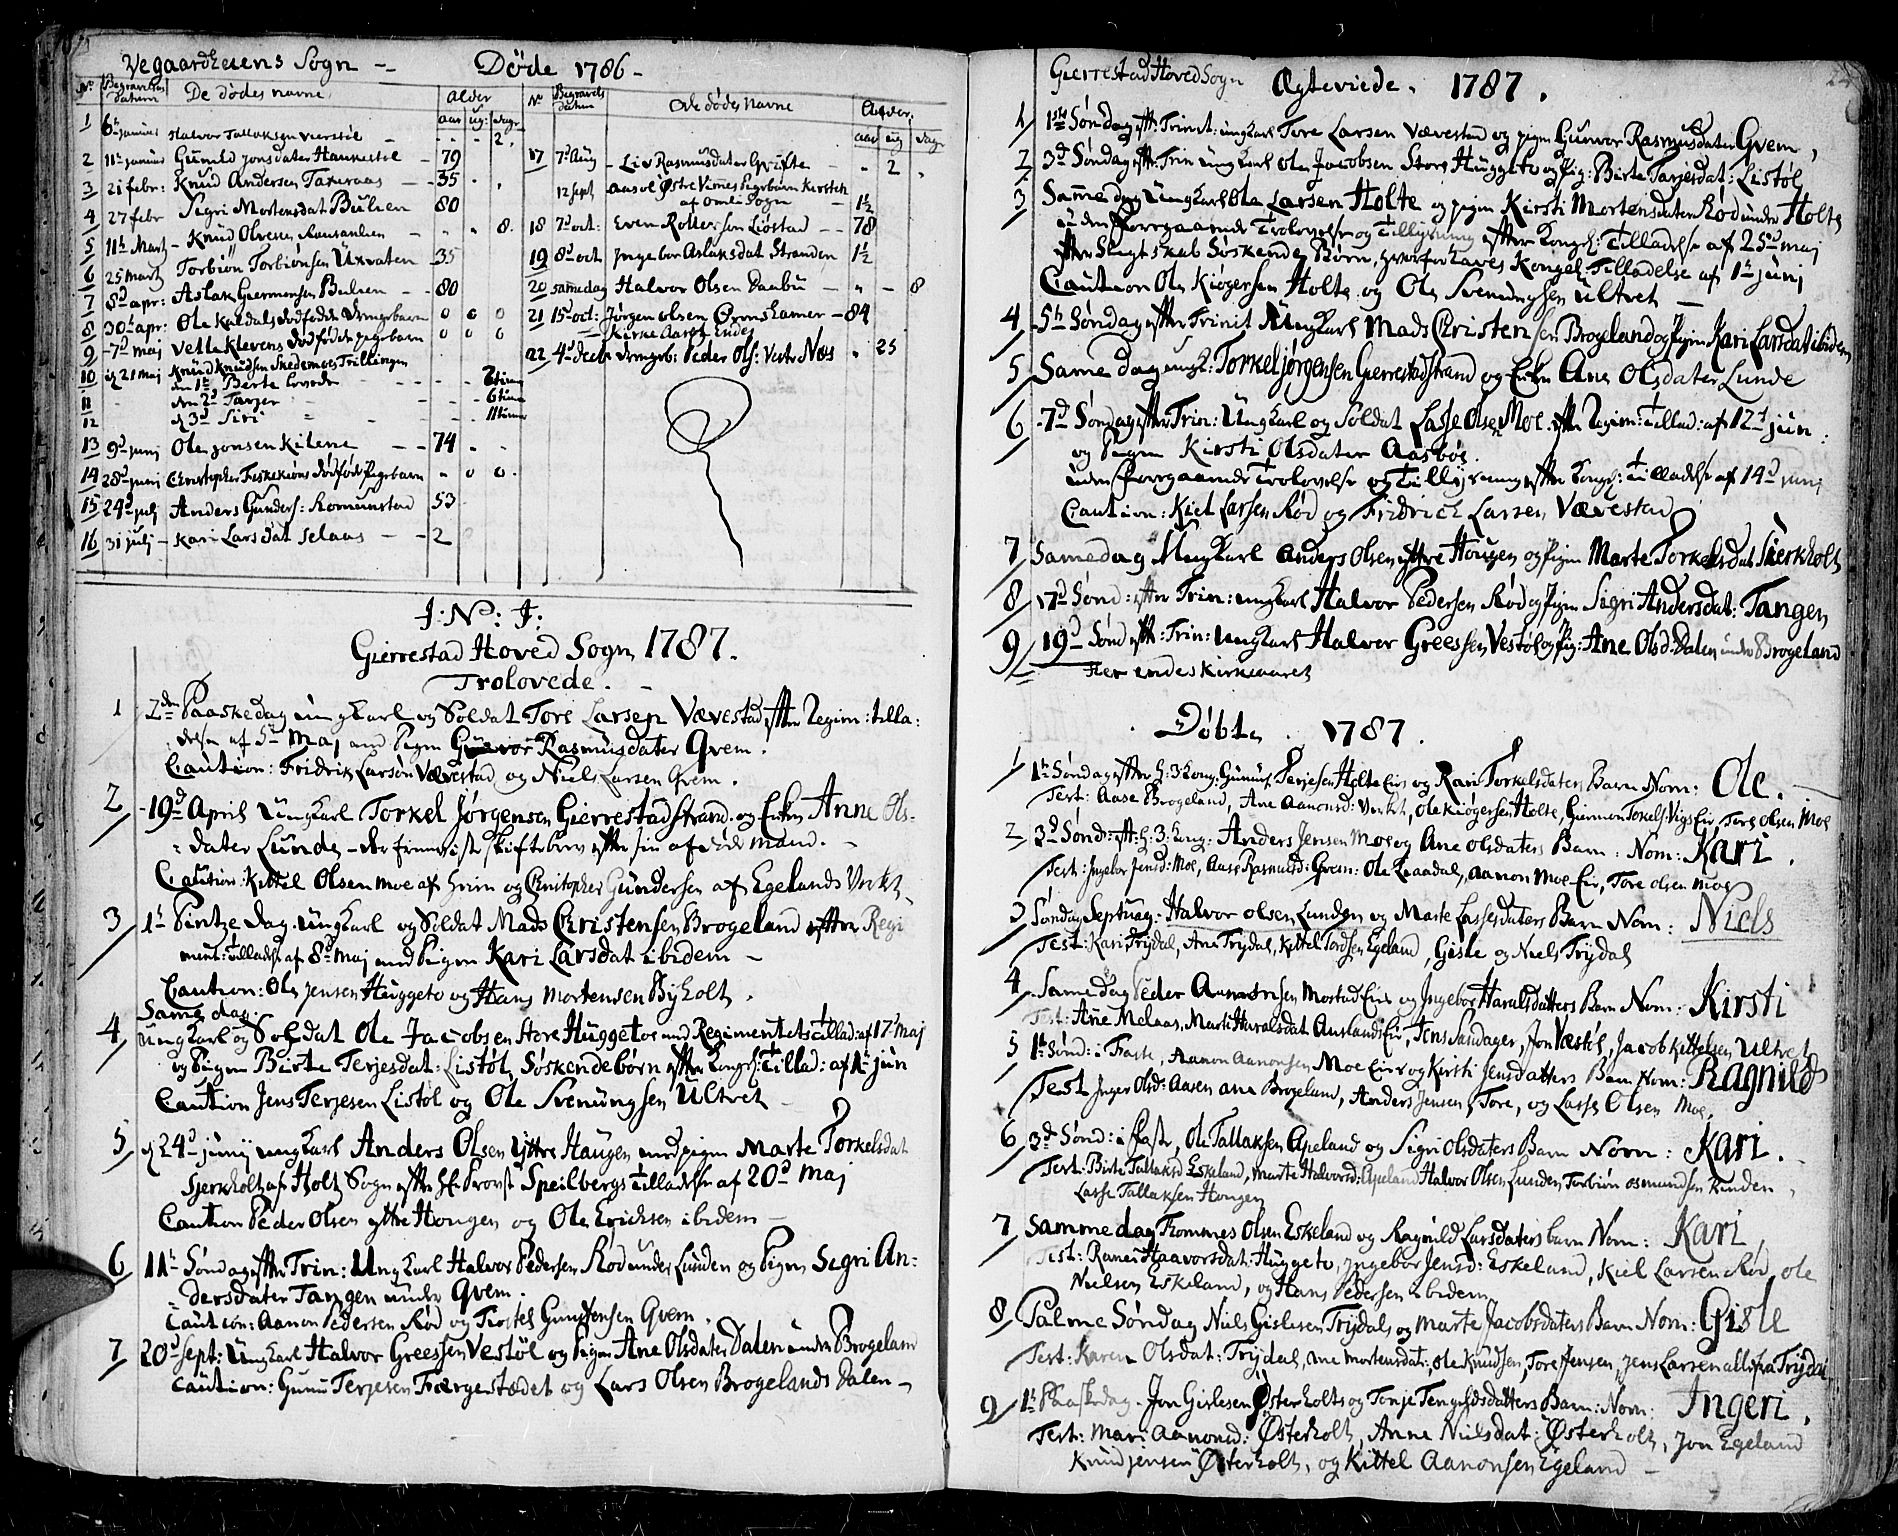 Vegaardheiens Sogn -- Døde 1786-
No Begravelses Datum De Dødes navne Alder
aar ug: Dage
1 6te januar Halvor Tallaksen - - - 2.
2 11te januar Gunild jonsdater - 79
3 21 febr: Knud Andersen - - 35
4 27 febr Sigri Mortensdat 80
5 11te Mart - Knud Olvesen - - - 8.
6 25 Marti Torbiön Torbiönsen 35
7 8de apr: Aslak Giermonsen - - 80
8 30te apr: Ole dödfödde Drengebarn 0 0 0
9 -7de Maj Vetleklevens dödfödde pigebarn 0 0 0
10 d. 21 Maj Knud Knudsen Trillinger
den 1te Berte
11 den 2d Tarjer
12 d 3d Siri
13 9de junj Ole jonsen Kilene - - 74 - -
14 28de junj Christopher dödföd Pigebarn - 0 0.
15 24de julj Anders Gunders: 53
16 31 julj - Kari Larsdat Selaas - - 2
No Begravels Datum De dødes Navne Alder.
aar ug Dage
17 7de Aug - Liv Rasmusdater " 2 "
12 Sept Aasol Østre Vimmes Pigebarn Kirsten
af Omli Sogn - 1½
18 7de oct: Even Liöstad - - 78
19 8de oct Ingebor Aslaksdat Stranden 1½
20 samedag Halvor Olsen " - 8
21 15de oct: Jørgen olsen - 84
= Kirke Aaret Endes
22 4de decbr Drengeb: Peder Ols: Vestre Næs " 25
J: N: J:
Gierrestad Hoved Sogn 1787.
Trolovede. -
1 2den Paaskedag ungkarl og Soldat Tore Larsen Vævestad efter Regim: tilla:
delse af 5te Maj med Pigen Gunvor Rasmusdater Qvem.
Caution: Fridrik Larsøn Vævestad og Niels Larsen Qvem.
2 -19de April Ungkarl Torkel Jørgensen Gierrestadstrand og Enken Anne Ols-
dater Lunde - der fremviste skiftebrev efter sin afdöde mand. -
Caution: Kittel Olsen Moe af og Christopher Gundersen af Egelands Verk
3 1te Pintze dag. Ungkarl og Soldat Mads Christensen Brogeland efter Regi
ment: tilladse af 8de Maj med Pigen Kari Larsdat ibidem -
Caution: Ole Jensen Huggeto og Hans Mortensen Byholt.
Same dag.
4 ungkarl og Soldat Ole Jacobsen Store Huggetoe med Regimentets tillad: af 17de Maj
og Pigen Birte Terjesdat: Listöl Söskendebörn efter Kongel: Tillad: af 1te Jun
Caution Jens Terjesen Listöl og Ole Svenungsen Ultvet -
5 d 24de junij ungkarl Anders Olsen yttre Haugen med pigen Marte Torkelsdat
Sjerkholt af Holt Sogn efter Hr Provst Speilbergs Tilladelse af 20de Maj
Caution Peder Olsen yttre Hougen og Ole Ericksen ibidem -
6 11te Söndag efter Trin: Ungkarl Halvor Pedersen Röd under Lunden og Pigen Segri An-
dersdater Tangen under Qvem.
Caution: Aanon Pedersen Röd og Gundersen Qvem.
7 20de sept: Ungkarl Halvor Greessen Vestöl og Pigen Ane Olsdater Dalen under Brogeland
Caution: Gunu Terjesen Færgestædet og Lars Olsen Brogelands Dalen -
Gierrestad Hoved Sogn Ægteviede. 1787.
1 1ste Söndag eft: Trinit: ungkarl Tore Larsen Vævestad og pigen Gunvor Rasmusdater Qvem,
2 3de Söndag efter: Trin Ungkarl Ole Jacobsen Store Huggeto og Pig: Birte Tarjesdat: Listöl
3 Samme dag Ungkarl Ole Larsen Holte og pigen Kirsti Mortensdater Röd under Holte
uden Foregaaende Trolovelse og Tillysning efter Kongel: Tilladelse af 25de maj
efter Slegtskab Söskende Børn, hvorfor haves Kongel: Tilladelse af 1te junj
Caution Ole Kiögersen Holte og Ole Svenungsen Ultvet -
4 5te Söndag efter Trinit Ungkarl Mads Christensen Brogeland og Pigen Kari Larsdat ibidem
5 Same dag ungk: Torkel jørgensen Gierrestadstrand og Enken Ane Olsdater Lunde
6 -7de Söndag efter Trin: Ungkarl og Soldat Lasse Olsen Moe efter Regim: Tillad: af 12te jun:
og Pigen Kirsti Olsdater Aasböe.
uden Foregaaende Trolovelse og Tillysning efter Kongel: Tilladelse af 14de junj
Caution: Kiel Larsen Röd og Fridrick Larsen Vævestad
7 Samedag Ungkarl Anders Olsen yttre Hougen og Pigen Marte Torkelsdat Sierkholt
8 17de Sönd: efter Trin: ungkarl Halvor Pedersen Röd og Pigen Sigri Andersdat: Tangen
9 19de Sönd eft: Trin: Ungkarl Halvor Greessen Vestöl og Pig: Ane Olsd: Dalen under Brogeland
Her endes Kirkeaaret
Döbte 1787.
1 1te Söndag efter H: 3 Kong: Gunu Terjesen Holte Eies og Kari Torkelsdaters Barn Nom: Ole.
Test: Aase Brogeland, Ane Aanonsd: Verket, Ole Kiögersen Holte, Giermon Torkels: Vigs Eie, Tore Olsen Moe
2 3de Sönd: eft: H: 3 Kong: Anders Jensen Moe og Ane Olsdaters Barn: Nom: Kari.
Test: Ingebor Jensd: Moe, Aase Rasmusd: Qvem: Ole Aanon Moe Eie, Tore Olsen Moe
3 Söndag Septuag: Halvor Olsen Lunden og Marte Lassesdaters Barn Nom: Niels
Test: Kari Trydal, Ane Trydal, Kittel Tordsen Egeland, Gisle og Niels Trydal
4 Samedag Peder Aanonsen Mostad Eie og Ingebor Haralsdatters Barn Nom: Kirsti
Test: Anne Melaas, Marti Haralsdat Eie, Jens Sandager, Jon Væstöl, Jacob Kittelsen Ultvet
5 1te Sönd: i Faste, Aanon Aanonsen Moe Eie og Kirsti Jensdatters Barn Nom: Ragnild
Test Inger Olsd: Aasen Ane Brogeland, Anders Jensen, Tore, og Lasse Olsen Moe,
6 3de Sönd: i Faste, Ole Tallaksen Apeland og Sigri Olsdaters Barn Nom: Kari.
Test: Birte Tallaksd Eskeland, Marte Halvorsd: Apeland Halvor Olsen Lunden Torbiön Osmundsen
Lasse Tallaksen Hougen
7 Samme dag Tommes Olsen Eskeland og Ragnild Larsdaters barn Nom: Kari
Test: Ranei Haavorsdat: Huggeto, Ingebor Jensd: Eskeland, Kiel Larsen Röd, Ole
Nielsen Eskeland, og Hans Pedersen ibidem
8 Palme Söndag Niels Gislesen Trydals og Marte Jacobsdaters Barn Nom: Gisle
Test: Karen Olsdat: Trydal, Ane Mortensdat:, Ole Knudsen, Tore Jensen, Jens Larsen alle fra Trydal
9 1te Paaskedag - Jon Gislesen Österholts og Tonje Tengelsdatters Barn: Nom: Ingeri.
Test: Mari Aanonsd: Österholt, Anne Nielsdat: Österholt, Jon Egeland
Knud jensen Österholt, og Kittel Aanonsen Egeland -